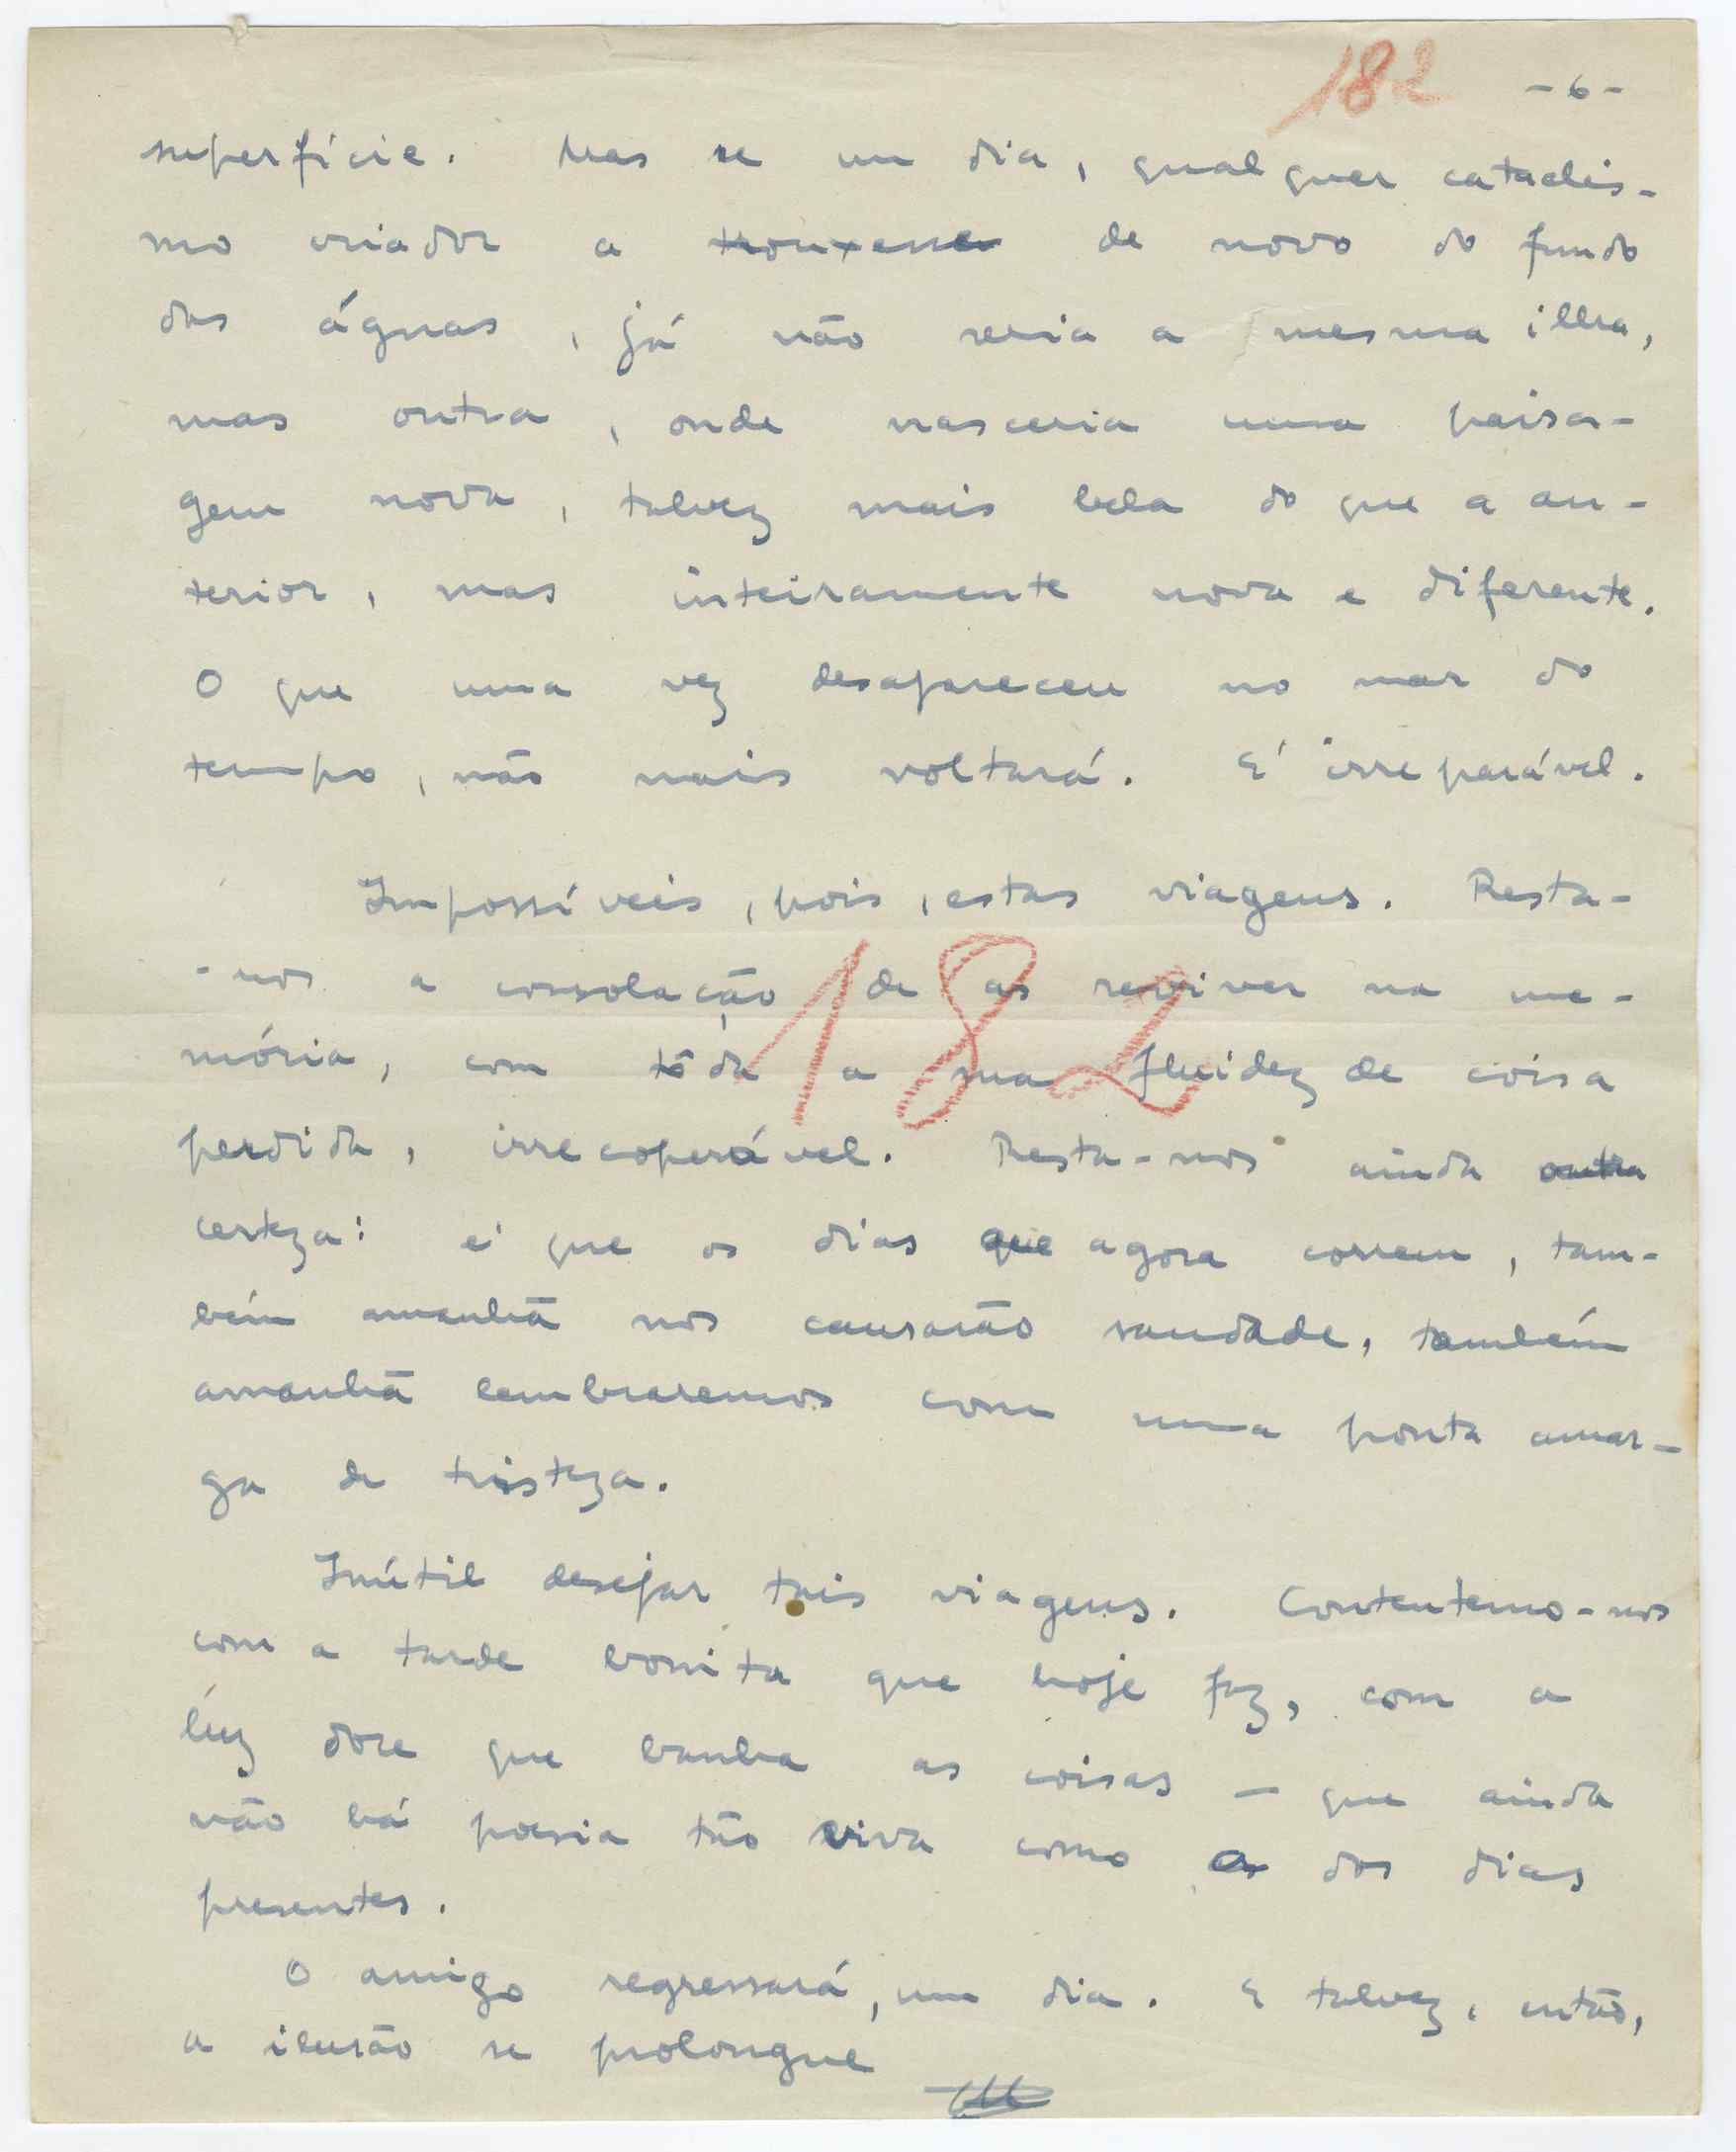 182 -6-
superfície. Mas se um dia, qualquer cataclis-
mo criador a trouxesse de novo do fundo
das águas, já não seria a mesma ilha,
mas outra, onde nasceria uma paisa-
gem nova, talvez mais bela do que a an-
terior, mas inteiramente nova e diferente.
O que uma vez desapareceu no mar do
tempo, não mais voltará. E' irreparável.
Impossíveis, pois, estas viagens. Resta-
-nos a consolação de as reviver na me-
mória, com tôda a sua fluidez de coisa
perdida, irrecoperável. Resta-nos ainda outra
certeza: é que os dias que agora correm, tam-
bém amanhã nos causarão saudade, também
amanhã lembraremos com uma ponta amar-
ga de tristeza.
Inútil desejar tais viagens. Contentemo-nos
com a tarde bonita que hoje faz, com a
lúz doce que banha as coisas - que ainda
não há poesia tão viva como a dos dias
presentes.
O amigo regressará, um dia. E talvez, então,
a ilusão se prolongue
182